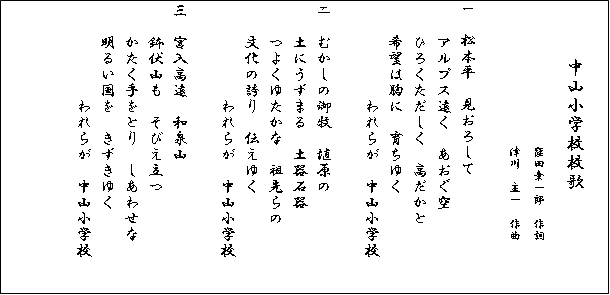 中山小学校校歌
窪田章一郎 作詞
津川 主一 作曲
一 松本平 見おろして
アルプス遠く あおぐ空
ひろくただしく 高だかと
希望は胸に 育ちゆく
われらが 中山小学校
二 むかしの御牧 埴原の
土にうずまる 土器石器
つよくゆたかな 祖先らの
文化の誇り 伝えゆく
われらが 中山小学校
三 宮入高遠 和泉山
鉢伏山も そびえ立つ
かたく手をとり しあわせな
明るい国を きずきゆく
われらが 中山小学校